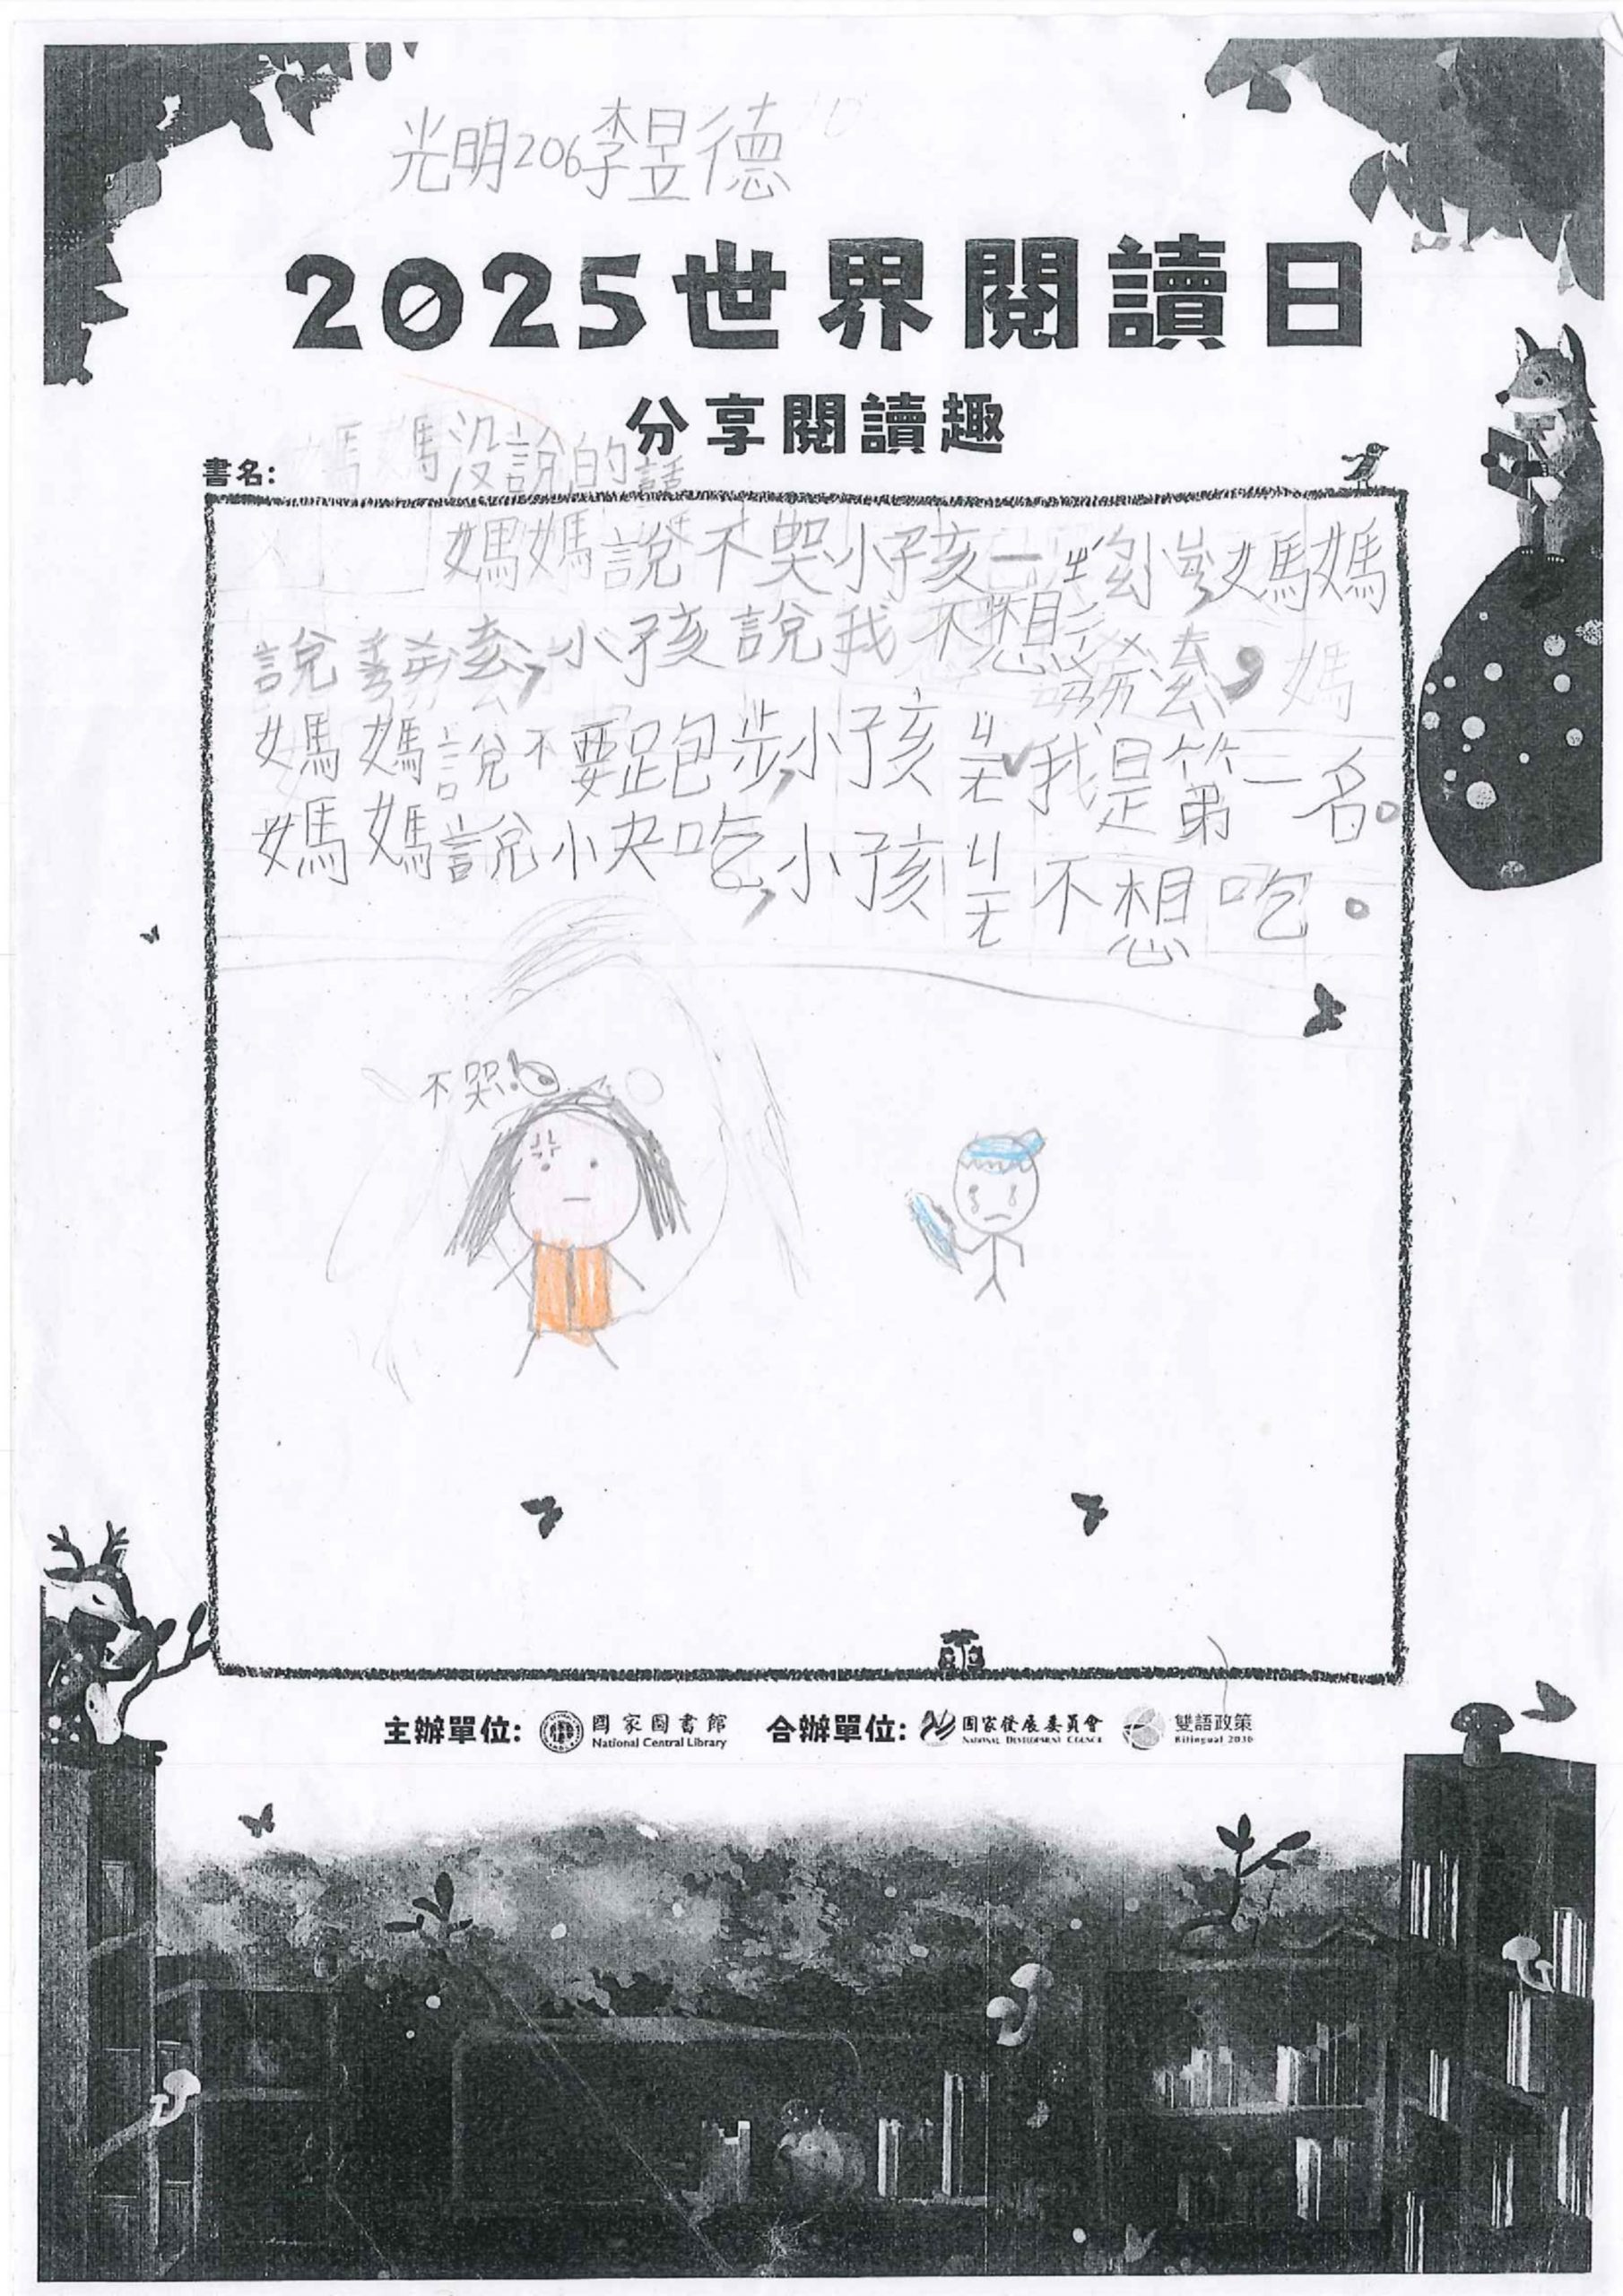 光明206李昱德
2025世界閱讀日
分享閱讀趣
書名: 媽媽沒說的話
媽媽說不哭小孩一 媽媽
說 小孩說我不想 媽
媽媽說不要跑步,小孩 我是第一名。
媽媽說小夬吃,小孩 不想吃。
不哭!
主辦單位: 國家圖書館 National Central Library 合辦單位: 國家發展委員會 National Development Council 雙語政策 Bilingual 2030